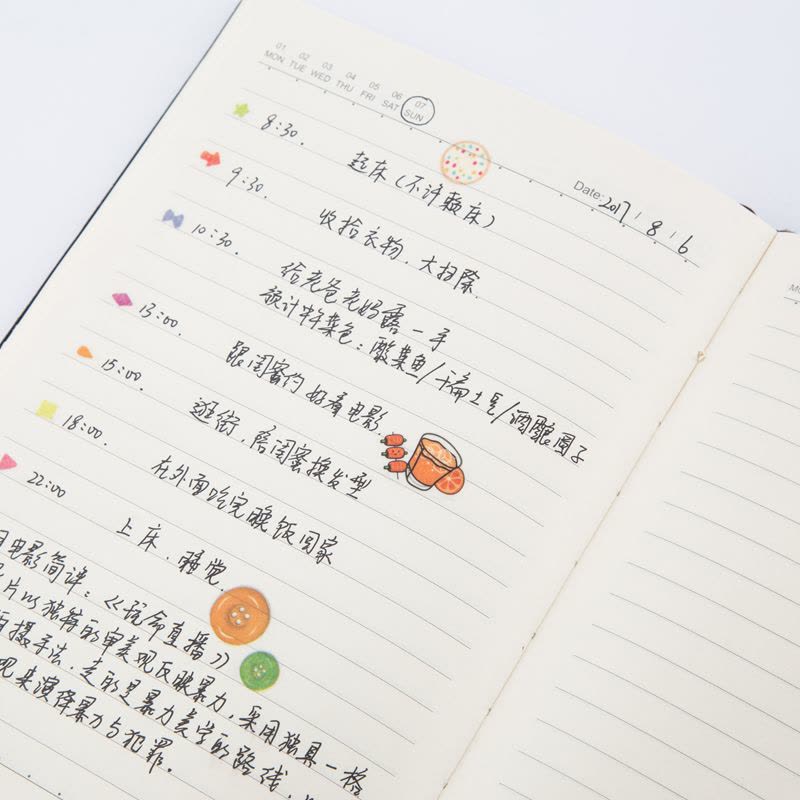 01 02 03 04 05 06 07
MON TUE WED THU FRI SAT SUN
Date: 2017 / 8 / 6
8:30. 起床(不许赖床)
9:30. 收拾衣物、大扫除.
10:30. 给老爸老妈露一手
预计料菜色：酸菜鱼/干煸土豆/酒酿圆子
13:00. 跟闺蜜约好看电影.
15:00. 逛街,陪闺蜜换发型
18:00. 在外面吃完晚饭回家
22:00 上床、睡觉.
电影简评：《 命直播》
片以独特的审美观反映暴力,采用独具一格
摄手法,走的是暴力美学的路线,
来演绎暴力与犯罪.
MO